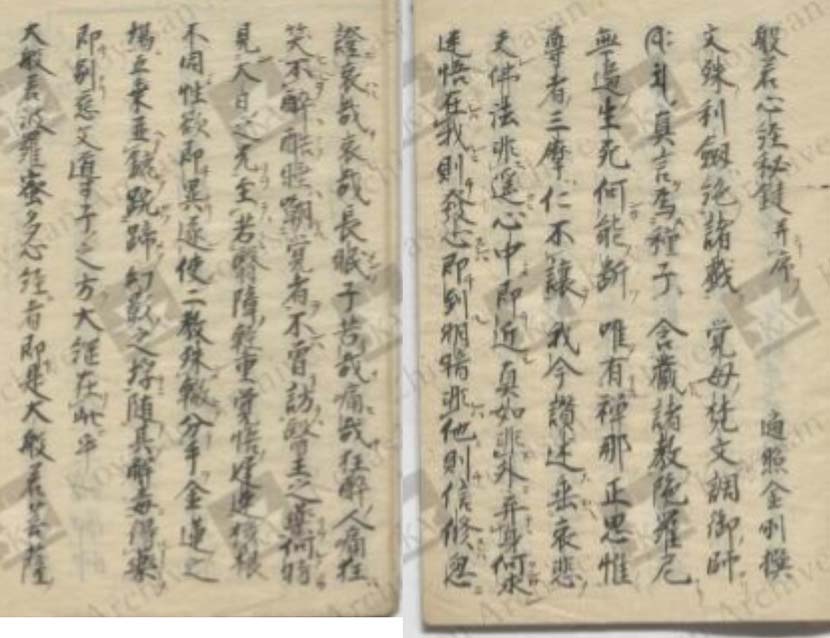 般若心経秘鍵并序 遍照金剛撰
文殊利劔絶諸戯 覚母梵文調御師
真言為種子 含蔵諸教陀羅尼
無邊生死何能断 唯有禅那正思惟
尊者三摩仁不譲 我今讃述垂哀悲
夫佛法非遥心中即近真如非外弃身何求
迷悟在我則發心即到明暗非他則信修忽
證哀哉哀哉長眠子苦哉痛哉狂酔人痛狂
笑不酔酷睡嘲覚者不曽訪醫王之藥何時
見大日之光至若翳障軽重覚悟遅速機根
不同性欲即異遂使二教殊轍分手金蓮之
場五乗並鑣踠蹄幻影之埒随其解毒得藥
即別慈父導子之方大綱在此乎
大般若波羅蜜多心経者即是大般若菩薩